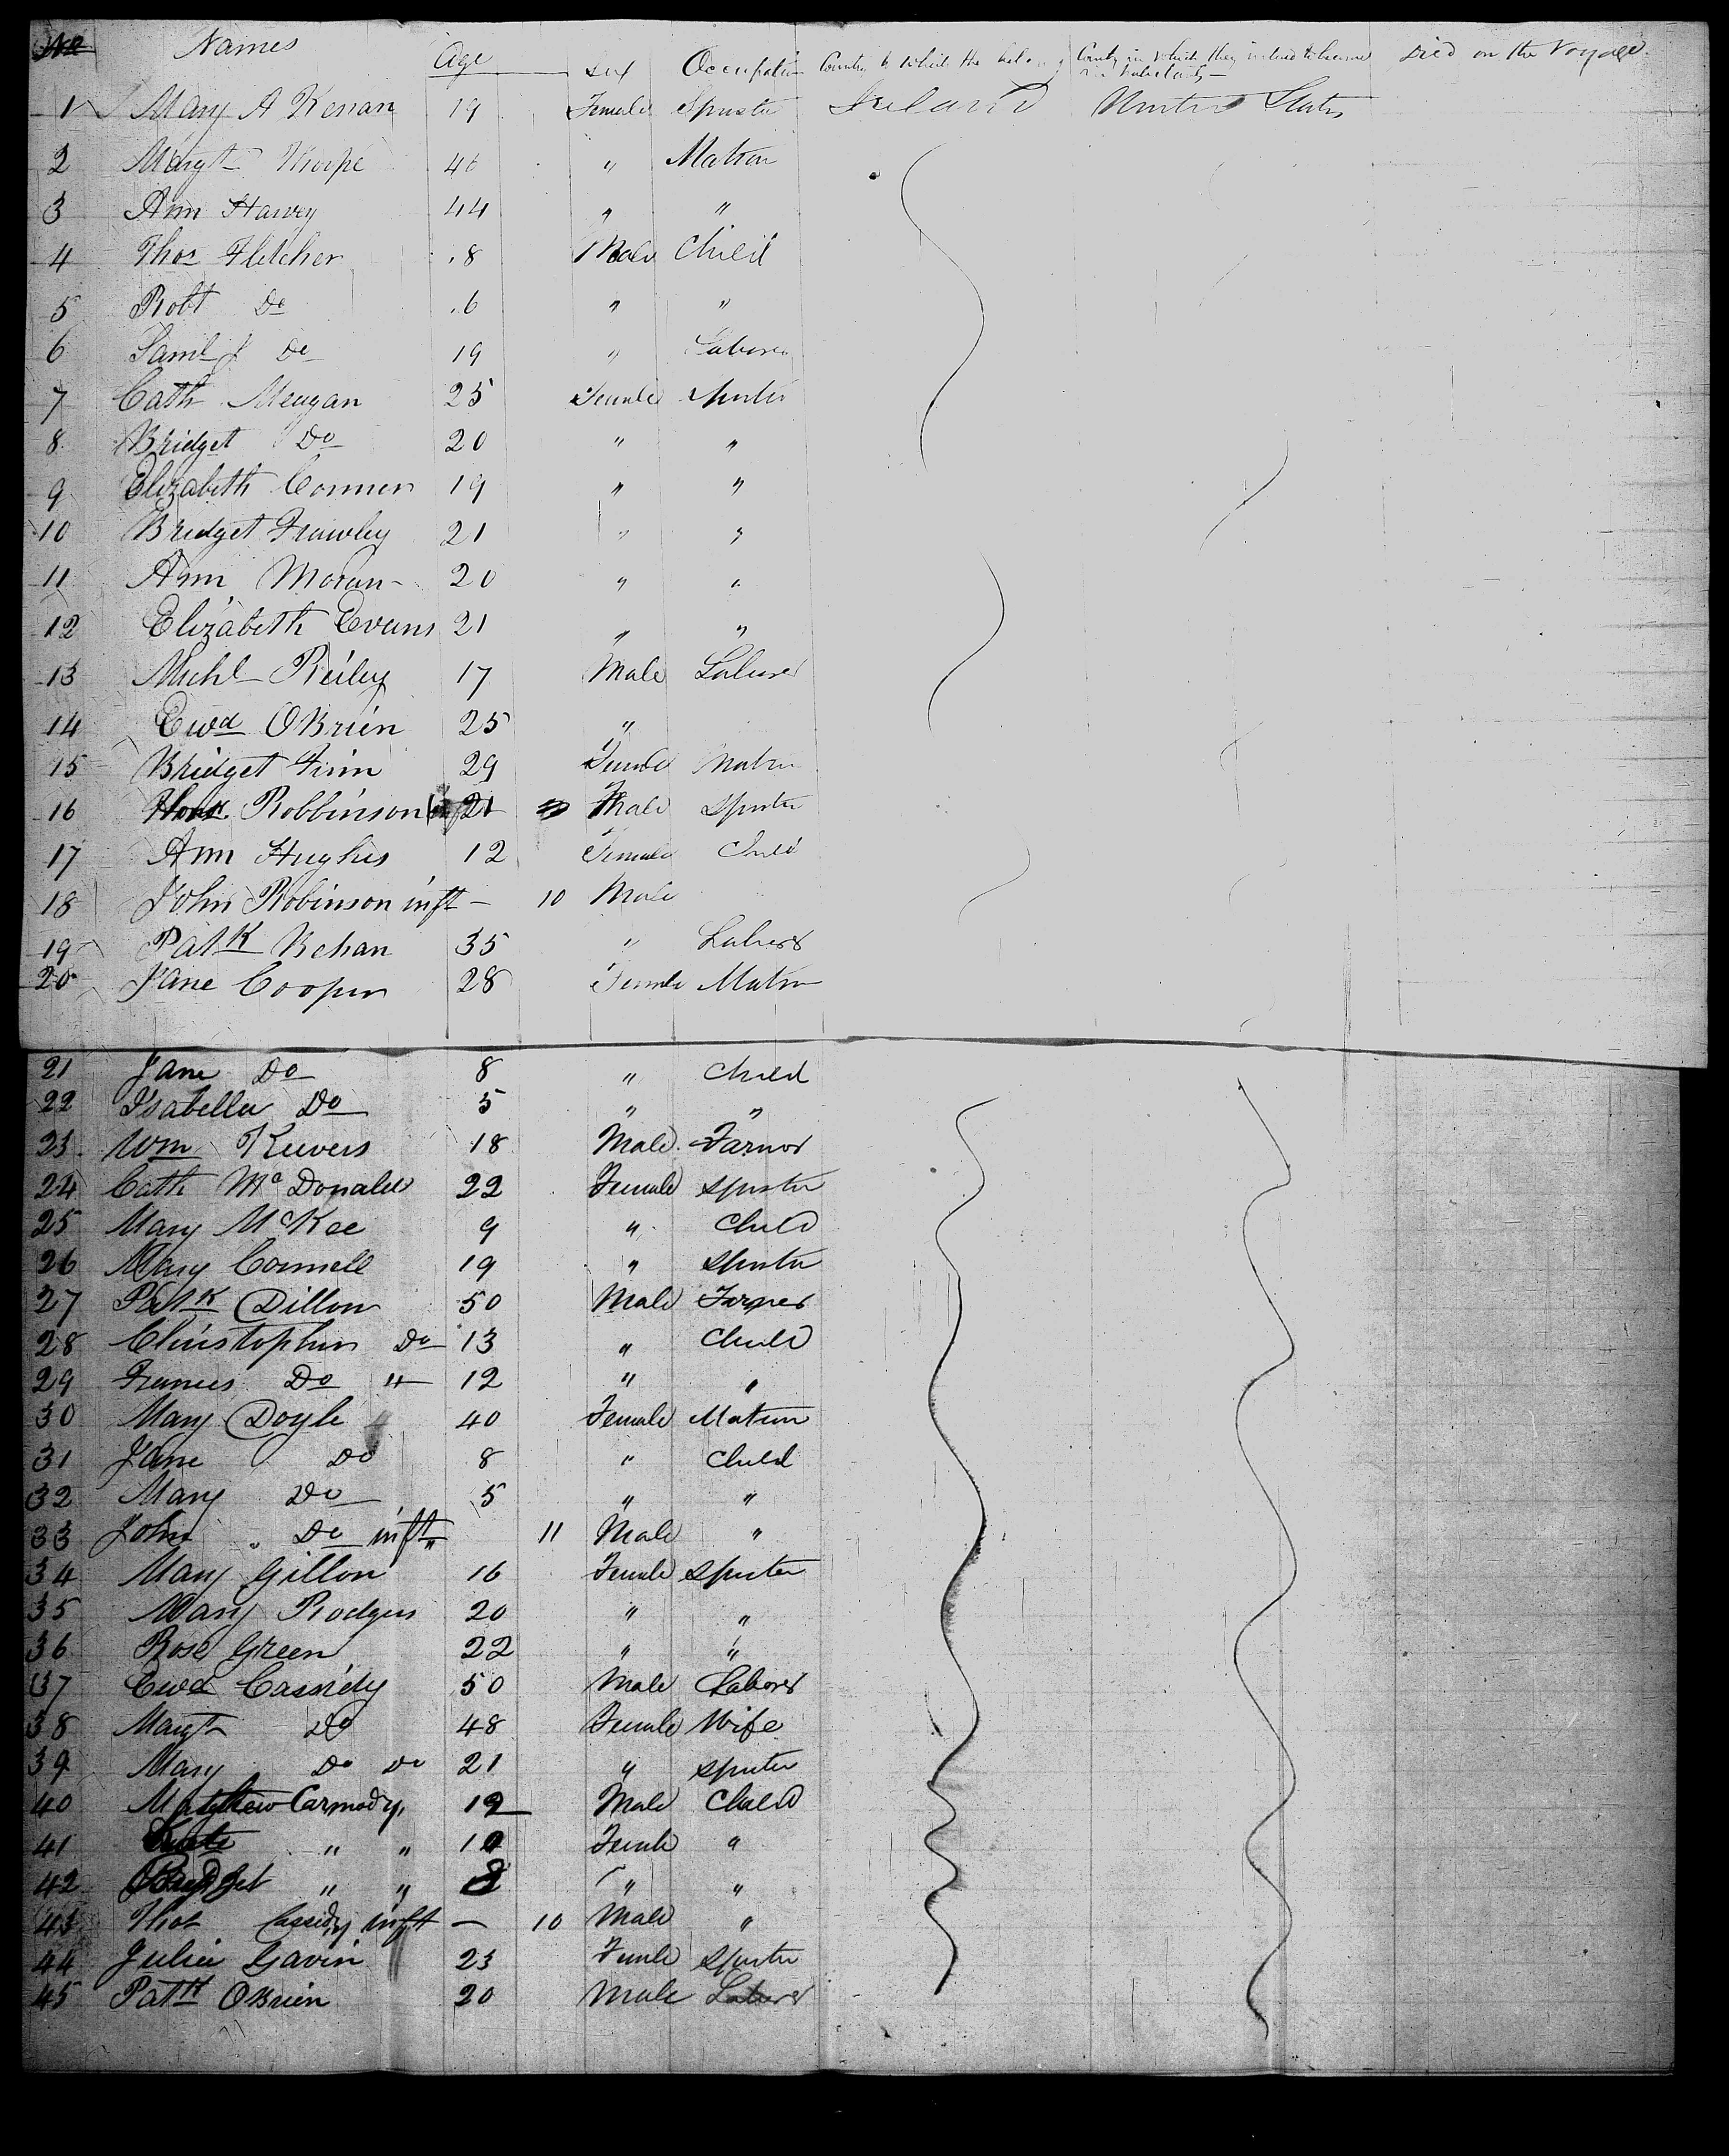 No Names Age Sex Occupation Country to which they belong Country in which they intend to become inhabitants Died on the Voyage
1 Mary A Kenan 19 Female Spinster Ireland United States
2 Margt Thorpe 46 " Matron
3 Ann Harvey 44 " "
4 Thos Fletcher 8 Male Child
5 Robt Do 6 " "
6 Saml J Do 19 " Laborer
7 Cath Meugan 25 Female Spinster
8 Bridget Do 20 " "
9 Elizabeth Conner 19 " "
10 Bridget Frawley 21 " "
11 Ann Moran 20 " "
12 Elizabeth Evans 21 " "
13 Michl Reiley 17 Male Laborer
14 Ewd OBrien 25 "
15 Bridget Finn 29 Female Matron
16 Robbinson 21 Spinster
17 Ann Hughes 12 Female Child
18 John Robinson inft - 10 Male
19 Patk Behan 35 " Laborer
20 Jane Cooper 28 Female Matron
21 Jane Do 8 " Child
22 Isabella Do 5 " "
23 Wm Keevers 18 Male Farmer
24 Cath McDonald 22 Female Spinster
25 Mary McKee 9 " Child
26 Mary Connell 19 " Spinster
27 Patk Dillon 50 Male Farmer
28 Christopher Do 13 " Child
29 Frances Do " 12 " "
30 Mary Doyle 40 Female Matron
31 Jane Do 8 " Child
32 Mary Do 5 " "
33 John " Do inft 11 Male "
34 Mary Gillon 16 Female Spinster
35 Mary Rodgers 20 " "
36 Rose Green 22 " "
37 Ewd Cassidy 50 Male Laborer
38 Margt Do 48 Female Wife
39 Mary Do Do 21 " Spinster
40 Matthew Carmody 12 Male Child
41 " " 10 Female "
42 Bridget " " 8 " "
43 Thos Cassidy inft - 10 Male "
44 Julia Gavin 23 Female Spinster
45 Patk OBrien 20 Male Laborer